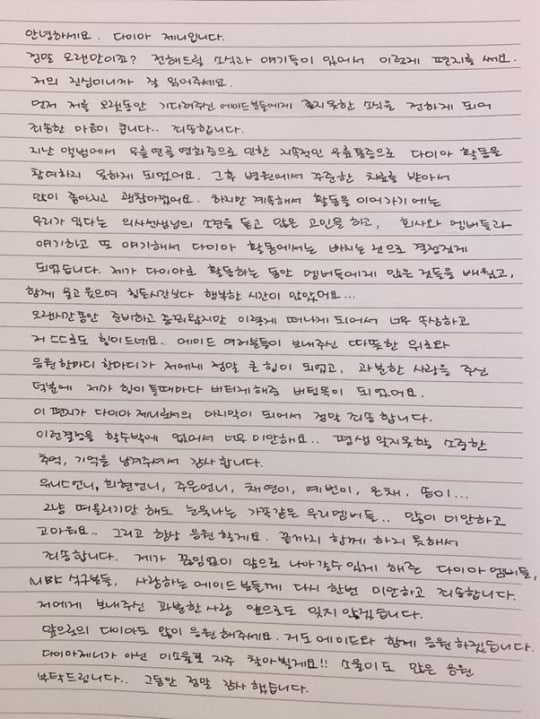 안녕하세요. 다이아 제니입니다.
정말 오랜만이죠? 전해드릴 소식과 얘기들이 있어서 이렇게 편지를 써요.
저의 진심이니까 잘 읽어주세요.
먼저 저를 오랫동안 기다려주신 에이드분들에게 좋지못한 소식을 전하게 되어
죄송한 마음이 큽니다.. 죄송합니다.
지난 앨범에서 무릎연골연화증으로 인한 지속적인 무릎통증으로 다이아 활동을
참여하지 못하게 되었어요. 그후 병원에서 꾸준한 치료를 받아서
많이 좋아지고 괜찮아졌어요. 하지만 계속해서 활동을 이어가기에는
무리가 있다는 의사선생님의 소견을 듣고 많은 고민을 하고, 회사와 멤버들과
얘기하고 또 얘기해서 다이아 활동에서는 빠지는 것으로 결정짓게
되었습니다. 제가 다이아로 활동하는 동안 멤버들에게 많은 것들을 배웠고,
함께 울고 웃으며 힘든시간보다 행복한 시간이 많았어요...
오랜시간동안 준비하고 춤춰왔지만 이렇게 떠나게 되어서 너무 속상하고
저 스스로도 힘이드네요. 에이드 여러분들이 보내주신 따뜻한 위로와
응원한마디 한마디가 저에게 정말 큰 힘이 되었고, 과분한 사랑을 주신
덕분에 제가 힘이들때마다 버티게해준 버팀목이 되었어요.
이 편지가 다이아 제니로써의 마지막이 되어서 정말 죄송합니다.
이런결정을 할수밖에 없어서 너무 미안해요.. 평생 잊지못할 소중한
추억, 기억을 남겨주셔서 감사합니다.
유니스언니, 희현언니, 주은언니, 채연이, 예빈이, 은채, 솜이...
그냥 떠올리기만 해도 눈물나는 가족같은 우리멤버들.. 많이 미안하고
고마워요.. 그리고 항상 응원할게요. 끝까지 함께 하지 못해서
죄송합니다. 제가 끊임없이 앞으로 나아갈수 있게 해준 다이아 멤버들,
MBK 식구분들, 사랑하는 에이드분들께 다시 한번 미안하고 죄송합니다.
저에게 보내주신 과분한 사랑 앞으로도 잊지 않겠습니다.
앞으로의 다이아도 많이 응원해주세요. 저도 에이드와 함께 응원하겠습니다.
다이아제니가 아닌 이소율로 자주 찾아뵐게요!! 소율이도 많은 응원
부탁드립니다.. 그동안 정말 감사했습니다.